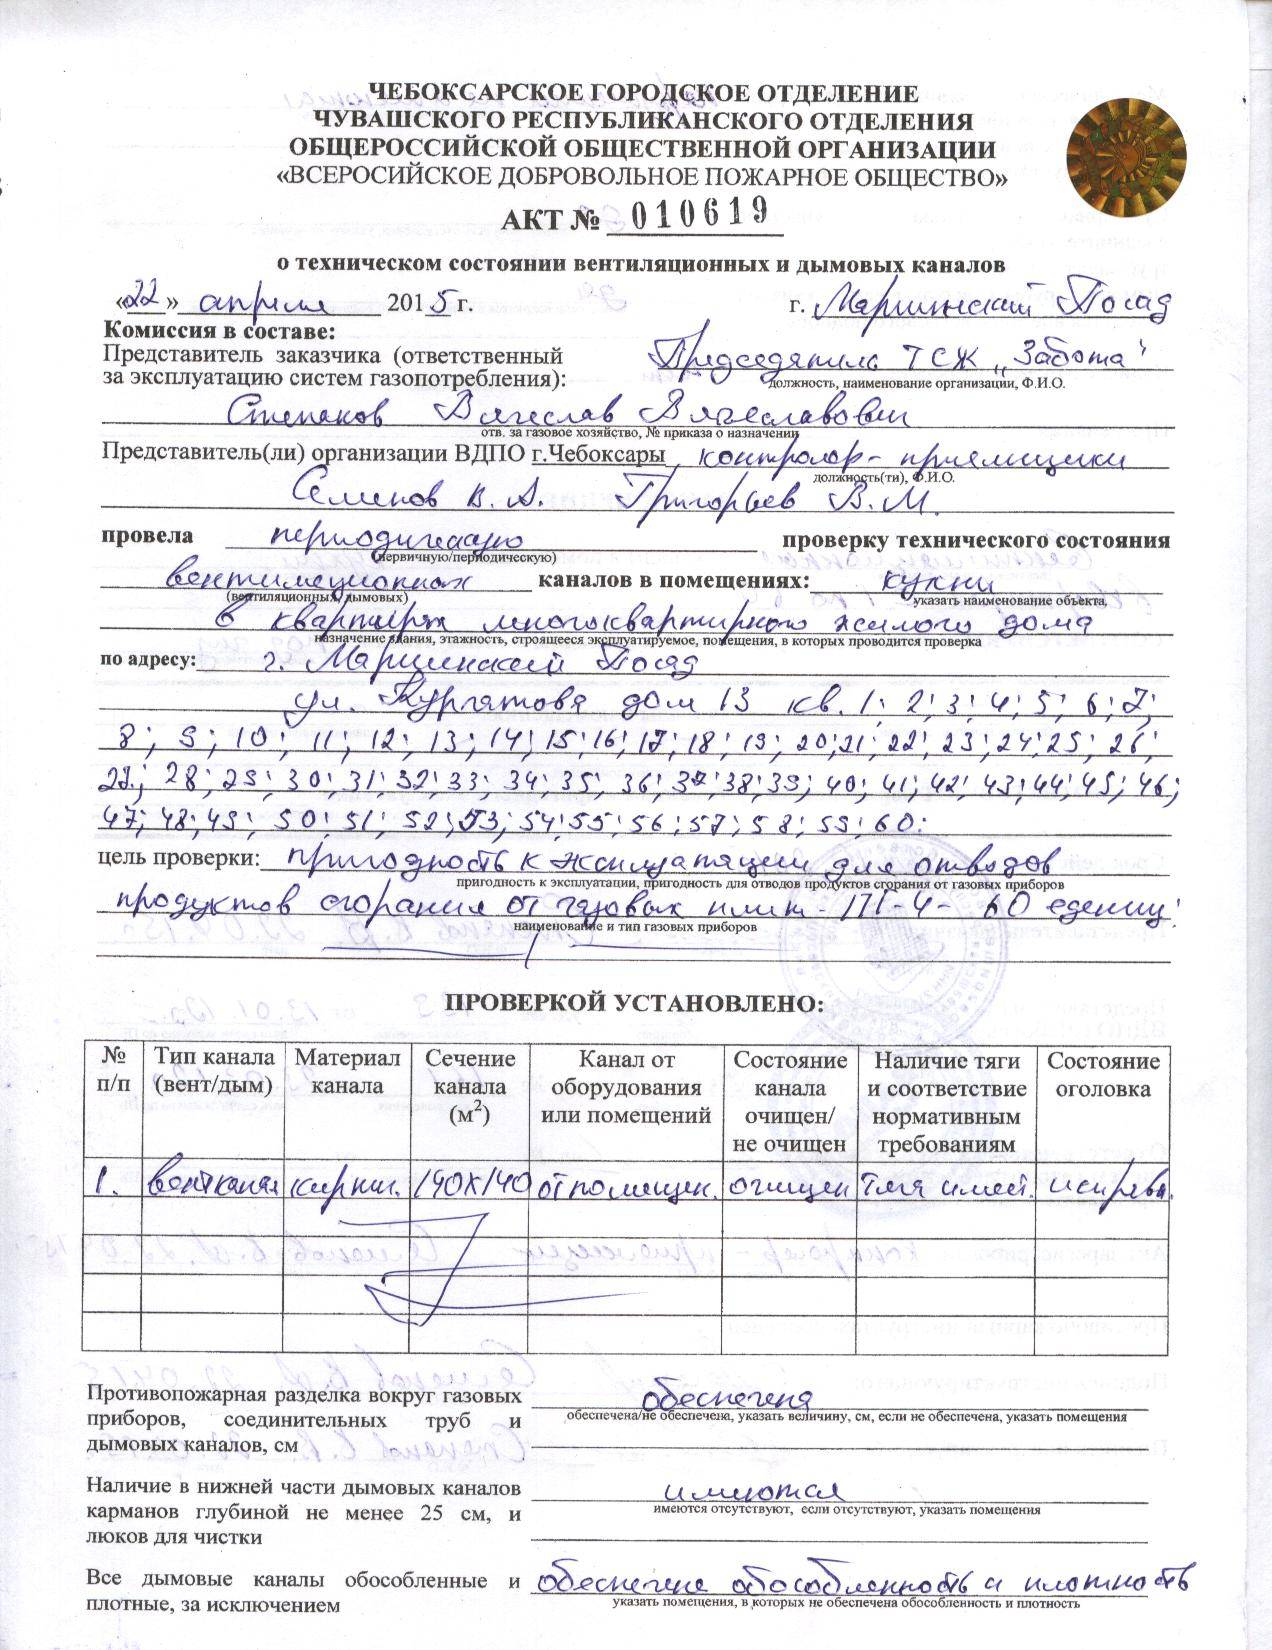 ЧЕБОКСАРСКОЕ ГОРОДСКОЕ ОТДЕЛЕНИЕ
ЧУВАШСКОГО РЕСПУБЛИКАНСКОГО ОТДЕЛЕНИЯ
ОБЩЕРОССИЙСКОЙ ОБЩЕСТВЕННОЙ ОРГАНИЗАЦИИ
«ВСЕРОСИЙСКОЕ ДОБРОВОЛЬНОЕ ПОЖАРНОЕ ОБЩЕСТВО»
АКТ № 010619
о техническом состоянии вентиляционных и дымовых каналов
«22» апреля 2015 г. г. Мариинский Посад
Комиссия в составе:
Представитель заказчика (ответственный Председатель ТСЖ „Забота"
за эксплуатацию систем газопотребления): должность, наименование организации, Ф.И.О.
Степанов Вячеслав Вячеславович
отв. за газовое хозяйство, № приказа о назначении
Представитель(ли) организации ВДПО г.Чебоксары контролер-приемщики
должность(ти), Ф.И.О.
Семенов В.А. Григорьев В.М.
провела периодическую проверку технического состояния
(первичную/периодическую)
вентиляционных каналов в помещениях: кухни
(вентиляционных, дымовых) указать наименование объекта,
в квартирах многоквартирного жилого дома
назначение здания, этажность, строящееся эксплуатируемое, помещения, в которых проводится проверка
по адресу: г. Мариинский Посад
ул. Курчатова дом 13 кв. 1; 2; 3; 4; 5; 6; 7;
8; 9; 10; 11; 12; 13; 14; 15; 16; 17; 18; 19; 20; 21; 22; 23; 24; 25; 26;
27; 28; 29; 30; 31; 32; 33; 34; 35; 36; 37; 38; 39; 40; 41; 42; 43; 44; 45; 46;
47; 48; 49; 50; 51; 52; 53; 54; 55; 56; 57; 58; 59; 60:
цель проверки: пригодность к эксплуатации для отводов
пригодность к эксплуатации, пригодность для отводов продуктов сгорания от газовых приборов
продуктов сгорания от газовых плит - ПГ-4- 60 едениц
наименование и тип газовых приборов
ПРОВЕРКОЙ УСТАНОВЛЕНО:
№ п/п Тип канала (вент/дым) Материал канала Сечение канала (м²) Канал от оборудования или помещений Состояние канала очищен/ не очищен Наличие тяги и соответствие нормативным требованиям Состояние оголовка
1. вентканал кирпич. 140х140 от помещен. очищен тяга имеет. исправн.
Противопожарная разделка вокруг газовых обеспечена
приборов, соединительных труб и обеспечена/не обеспечена, указать величину, см, если не обеспечена, указать помещения
дымовых каналов, см
Наличие в нижней части дымовых каналов имеются
карманов глубиной не менее 25 см, и имеются отсутствуют, если отсутствуют, указать помещения
люков для чистки
Все дымовые каналы обособленные и обеспечена обособленность и плотность
плотные, за исключением указать помещения, в которых не обеспечена обособленность и плотность